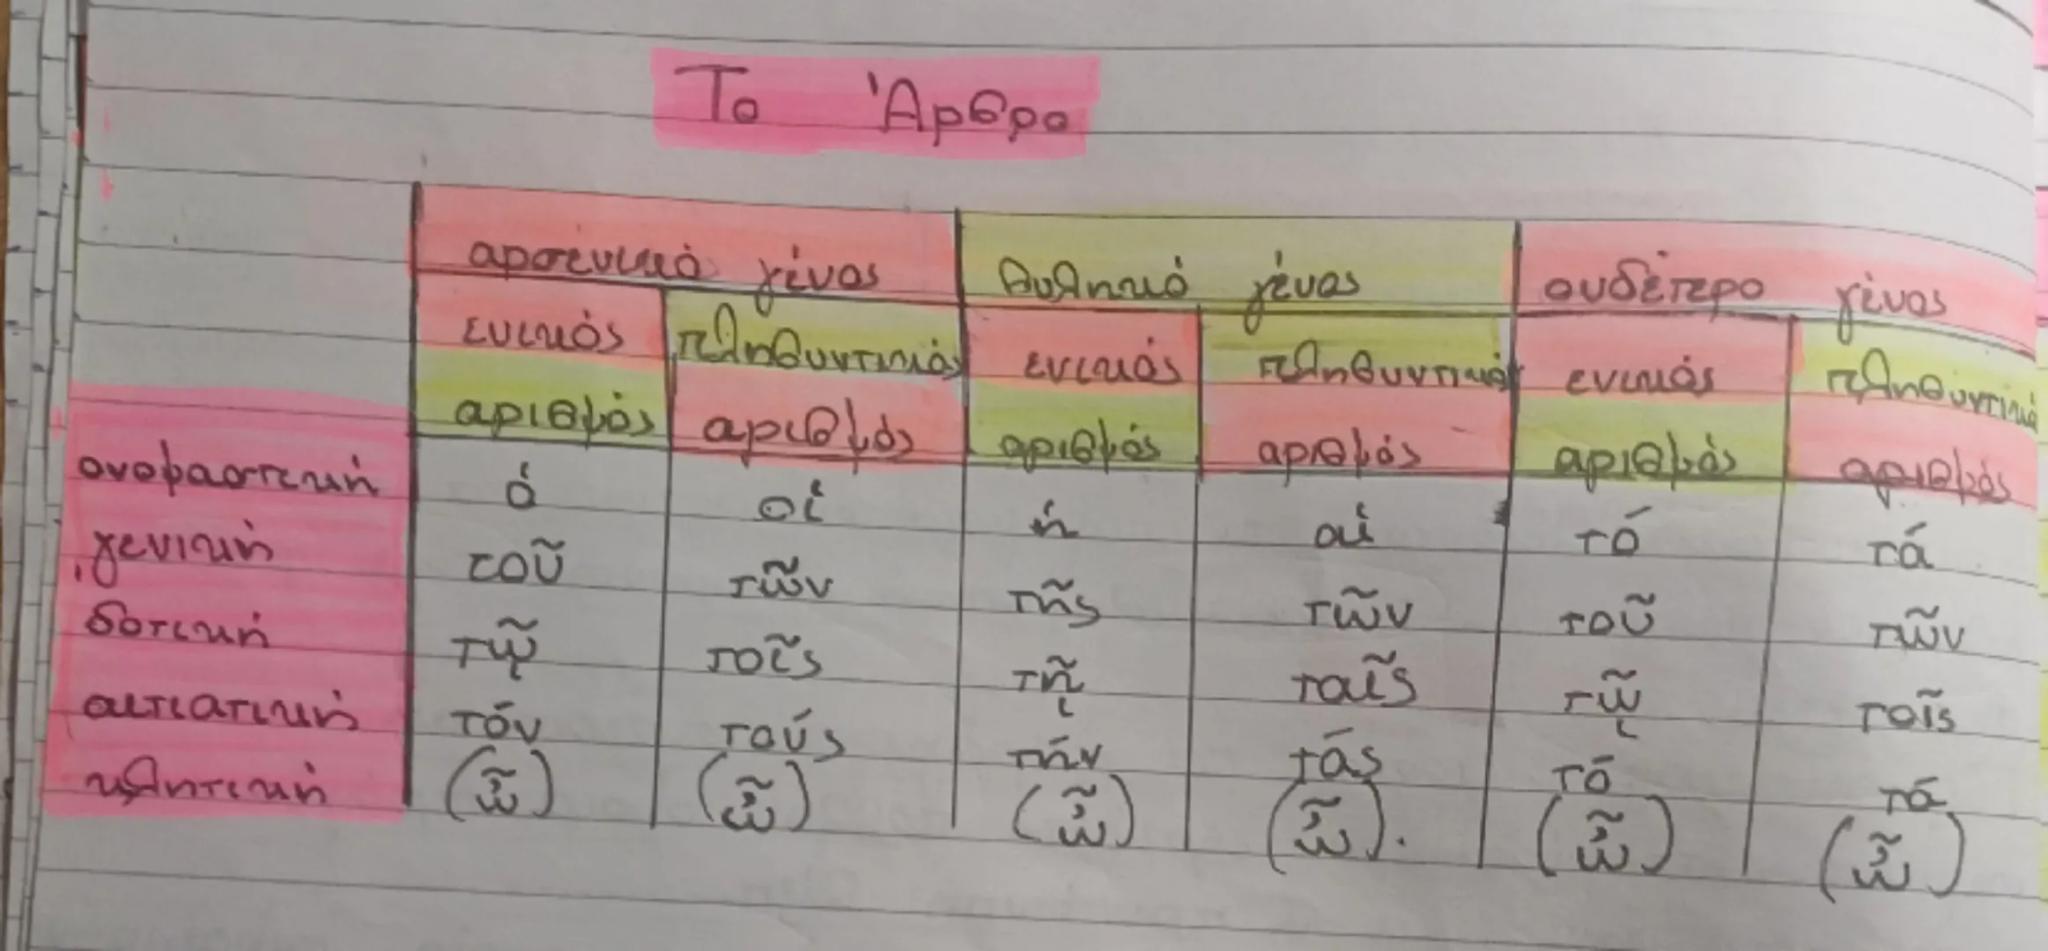 Το Άρθρο
αρσενικό γένος θυληκό γένος ουδέτερο γένος
ενικός πληθυντικός ενικός πληθυντικός ενικός πληθυντικό
αριθμός αριθμός αριθμός αριθμός αριθμός αριθμός
ονομαστική ὁ οἱ ἡ αἱ τό τά
γενική τοῦ τῶν τῆς τῶν τοῦ τῶν
δοτική τῷ τοῖς τῇ ταῖς τῷ τοῖς
αιτιατική τόν τούς τήν τάς τό τά
κλητική (ὦ) (ὦ) (ὦ) (ὦ). (ὦ) (ὦ)